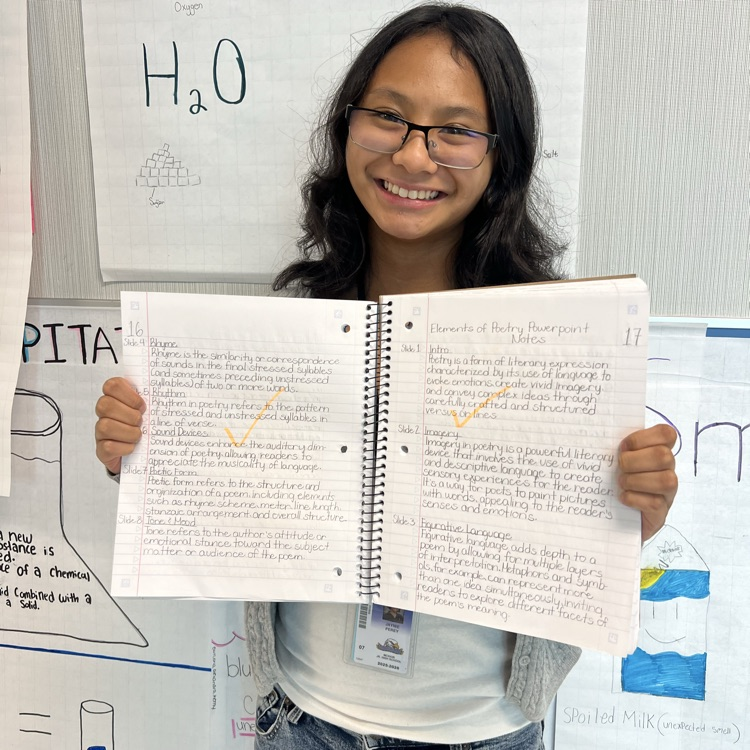 Oxygen
H2O
Sugar
Salt
PITA
16
Slide 4 Rhyme
Rhyme is the similarity or correspondence
of sounds in the final stressed syllables
(and sometimes preceding unstressed
syllables) of two or more words.
Rhythm
Rhythm in poetry refers to the pattern
of stressed and unstressed syllables in
a line of verse.
Sound Devices
Sound devices enhance the auditory dim-
ension of poetry, allowing readers to
appreciate the musicality of language.
Slide 7 Poetic Form
Poetic form refers to the structure and
organization of a poem, including elements
such as rhyme scheme, meter, line length,
stanzaic arrangement and overall structure.
Slide 8 Tone & Mood
Tone refers to the author's attitude or
emotional stance toward the subject
matter or audience of the poem.
Elements of Poetry Powerpoint
Notes
17
Slide 1 Intro
Poetry is a form of literary expression
characterized by its use of language to
evoke emotions, create vivid imagery
and convey complex ideas through
carefully crafted and structured
verses or lines.
Slide 2 Imagery
Imagery in poetry is a powerful literary
device that involves the use of vivid
and descriptive language to create
sensory experiences for the reader.
It's a way for poets to paint pictures
with words, appealing to the reader's
senses and emotions.
Slide 3 Figurative Language
Figurative language adds depth to a
poem by allowing for multiple layers
of interpretation. Metaphors and symb-
ols, for example, can represent more
than one idea simultaneously, inviting
readers to explore different facets of
the poem's meaning.
a new
is
ed.
of a chemical
combined with a
a solid.
07
PEREZ
2025-2026
blu
Sm
Spoiled Milk (unexpected smell)